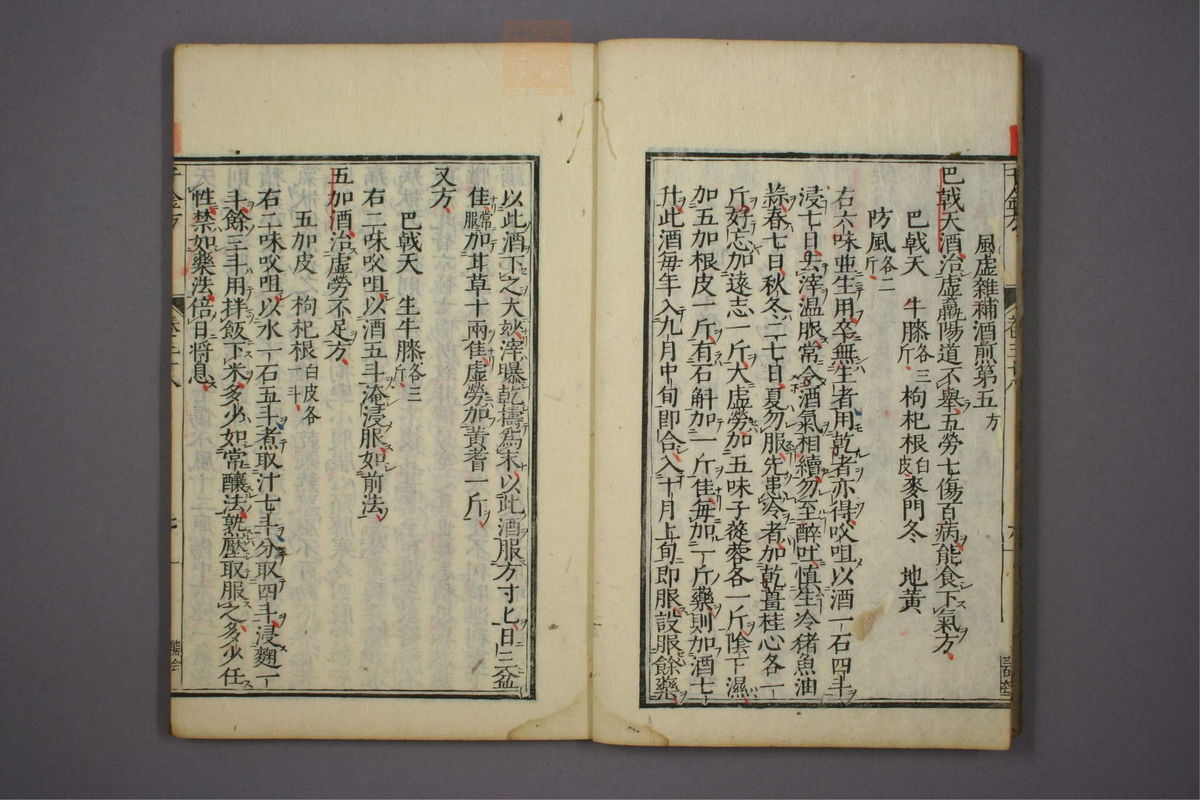 風虛雜補酒煎第五 方
巴戟天酒治虛羸陽道不舉五勞七傷百病能食下氣方
巴戟天 牛膝各三斤 枸杞根白皮 麥門冬 地黃
防風各二斤
右六味並生用卒無生者用乾者亦得㕮咀以酒一石四斗
浸七日去滓溫服常令酒氣相續勿至醉吐慎生冷猪魚油
蒜春七日秋冬二七日夏勿服先患冷者加乾薑桂心各一
斤好忘加遠志一斤大虛勞加五味子蓯蓉各一斤陰下濕
加五加根皮一斤有石斛加一斤佳每加一斤藥則加酒七
升此酒每年入九月中旬即合入十月上旬即服設服餘藥
以此酒下之大妙滓曝乾擣爲末以此酒服方寸匕日三益
佳常服加甘草十兩佳虛勞加黃耆一斤
又方
巴戟天 生牛膝各三斤
右二味㕮咀以酒五斗淹浸服如前法
五加酒治虛勞不足方
五加皮之 枸杞根白皮各一斗
右二味㕮咀以水一石五斗煮取汁七斗分取四斗浸麴一
斗餘三斗用拌飯下米多少如常釀法熟壓取服之多少任
性禁如藥法倍日將息